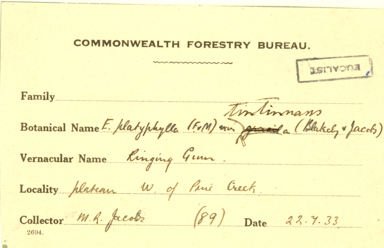 COMMONWEALTH FORESTRY BUREAU.
EUCALIST
Family
tintinnans
Botanical Name E. platyphylla (FvM) var (Blakely & Jacobs)
Vernacular Name Ringing Gum.
Locality plateau W. of Pine Creek
Collector M.R. Jacobs (89) Date 22.7.33
2694.